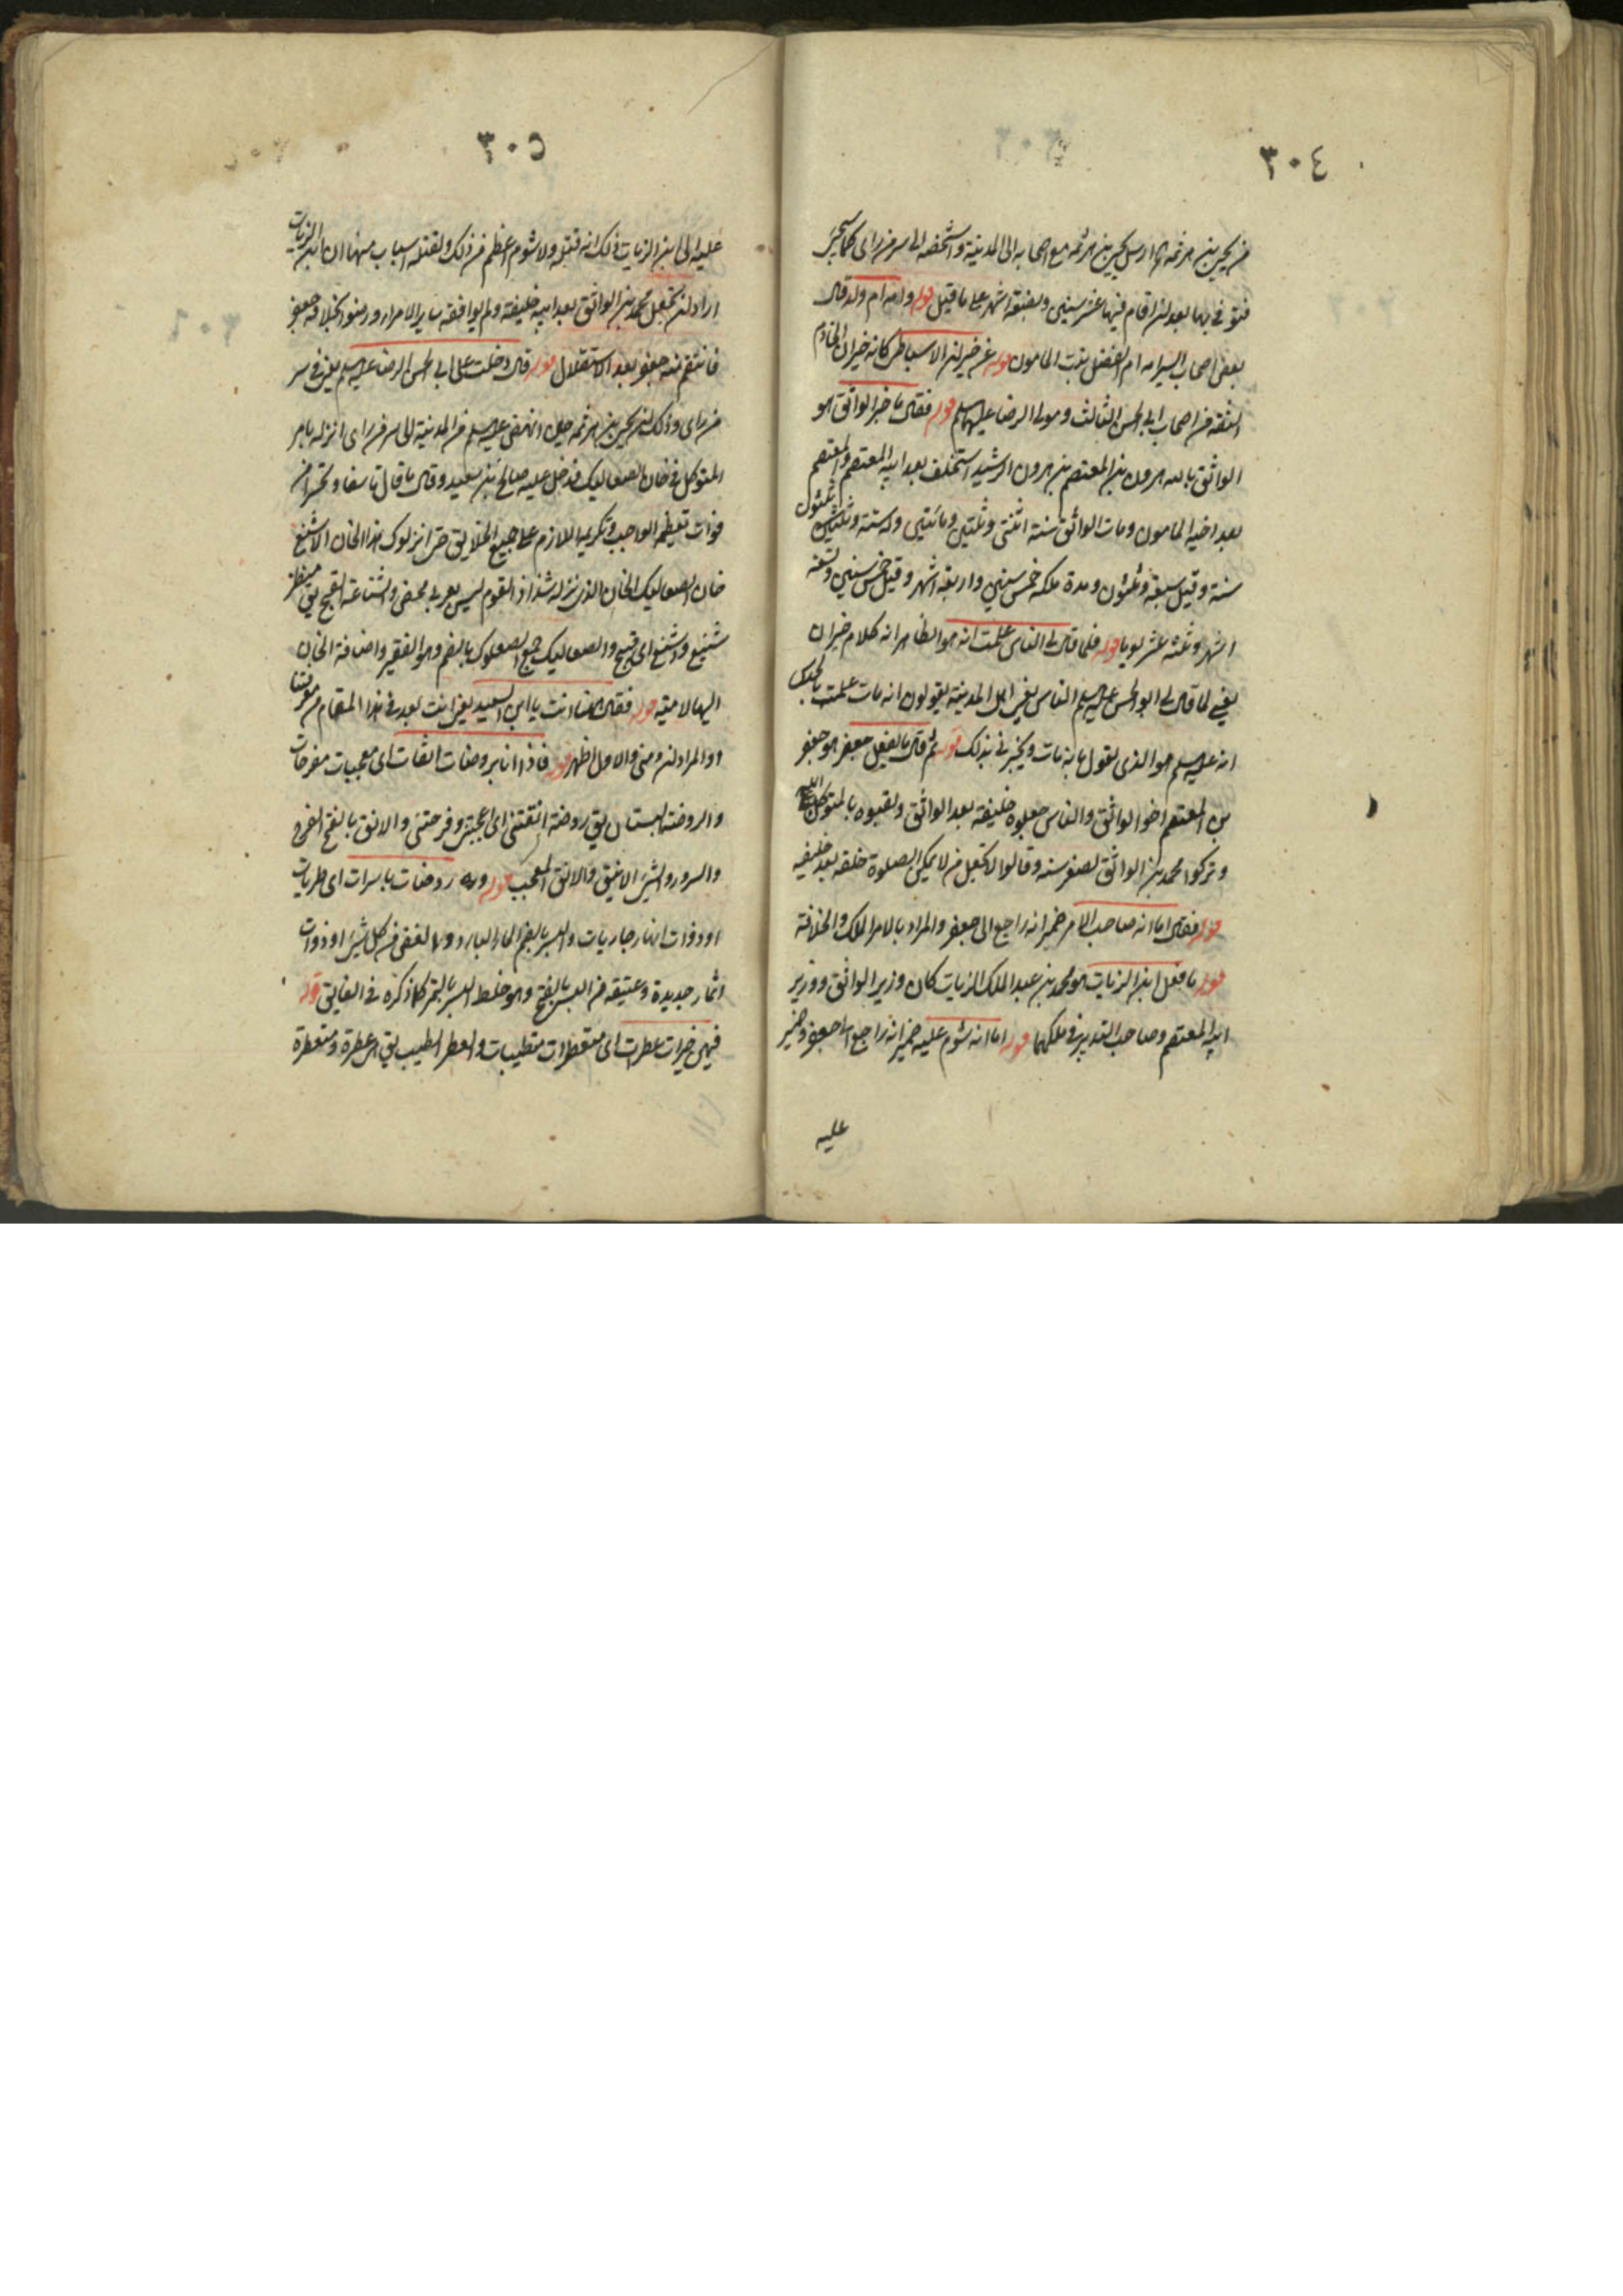 ٣٠٤
من يحيى بن هرثمه ارسل يحيى بن هرثمه مع اصحابه الى المدينة واشخصه الى سر من راى كما سيجئ
فتوفى بها بعد ان اقام فيها عشر سنين وبضعة اشهر على ما قيل قوله وامه ام ولد قال
بعض اصحاب السير امه ام الفضل بنت المامون قوله عن خيران الاسباطى كانه خيران الخادم
الثقة من اصحاب ابى الحسن الثالث ومولى الرضا عليهما السلم قوله فقال ما خبر الواثق هو
الواثق بالله هرون بن المعتصم بن هرون الرشيد استخلف بعد ابيه المعتصم والمعتصم
بعد اخيه المامون ومات الواثق سنة اثنتى وثلثين ومائتين وله ستة وثلثون
سنة وقيل سبعة وثلثون ومدة ملكه خمس سنين واربعة اشهر وقيل خمس سنين وتسعة
اشهر وثلثه عشر يوما قوله فلما قال لى الناس علمت انه هو الظاهر انه كلام خيران
يعنى لما قال لى ابو الحسن عليه السلم الناس يعنى اهل المدينة يقولون انه مات علمت بالحدس
انه عليه السلم هو الذى يقول بانه مات ويخبرنى بذلك قوله ثم قال ما يفعل جعفر هو جعفر
بن المعتصم اخو الواثق والناس جعلوه خليفة بعد الواثق ولقبوه بالمتوكل
وتركوا محمد بن الواثق لصغر سنه وقالوا لا نجعل من لا يمكن الصلوة خلفه بعد خليفه
قوله فقال اما انه صاحب الامر ضمير انه راجع الى جعفر والمراد بالامر الملك والخلافة
قوله ما فعل ابن الزيات هو محمد بن عبد الملك الزيات كان وزير الواثق ووزير
ابيه المعتصم وصاحب التدبير فى ملكهما قوله اما انه شوم عليه ضمير انه راجع الى جعفر وضمير
عليه
٣٠٥
عليه الى ابن الزيات وذلك انه قتله ولا شوم اعظم من ذلك ولقتله اسباب منها ان ابن الزيات
اراد ان يجعل محمد بن الواثق بعد ابيه خليفة ولم يوافقه ساير الامراء ورضوا بخلافة جعفر
فانتقم منه جعفر بعد الاستقلال قوله قال دخلت على ابى الحسن الرضا عليه السلم يعنى فى سر
من راى وذلك ان يحيى بن هرثمه حين انهضه عليه السلم من المدينة الى سر من راى انزله بامر
المتوكل فى خان الصعاليك فدخل عليه صالح بن سعيد وقال ما قال تاسفا وتحسرا من
فوات تعظيمه الواجب وتكريمه اللازم على جميع الخلايق حتى انزلوك هذا الخان الاشنع
خان الصعاليك الخان الذى ينزله شذاذ القوم ليس بعربى محض والشناعة القبح يق منظر
شنيع واشنع اى قبيح والصعاليك جمع الصعلوك بالضم وهو الفقير واضافة الخان
اليها لامية قوله فقال ههنا انت يا ابن السعيد يعنى انت بعد فى هذا المقام من معرفتنا
او المراد ان ومنى والاول اظهر قوله فاذا انا بروضات انقات اى معجبات مفرحات
والروضة البستان يق روضة انقتنى اى اعجبتنى وفرحتنى والانق بالفتح الفرح
والسرور والشئ الانيق والانق المعجب قوله وره روضات باسرات اى طريات
او ذوات انهار جاريات والبسر بالضم الماء البارد والغض من كل شئ او ذوات
اثمار جديدة وعتيقة من البسر بالفتح وهو خلط البسر بالتمر كما ذكره فى الفايق قوله
فيهن خيرات عطرات اى متعطرات متطيبات والعطر الطيب يق امرءة عطرة ومتعطرة